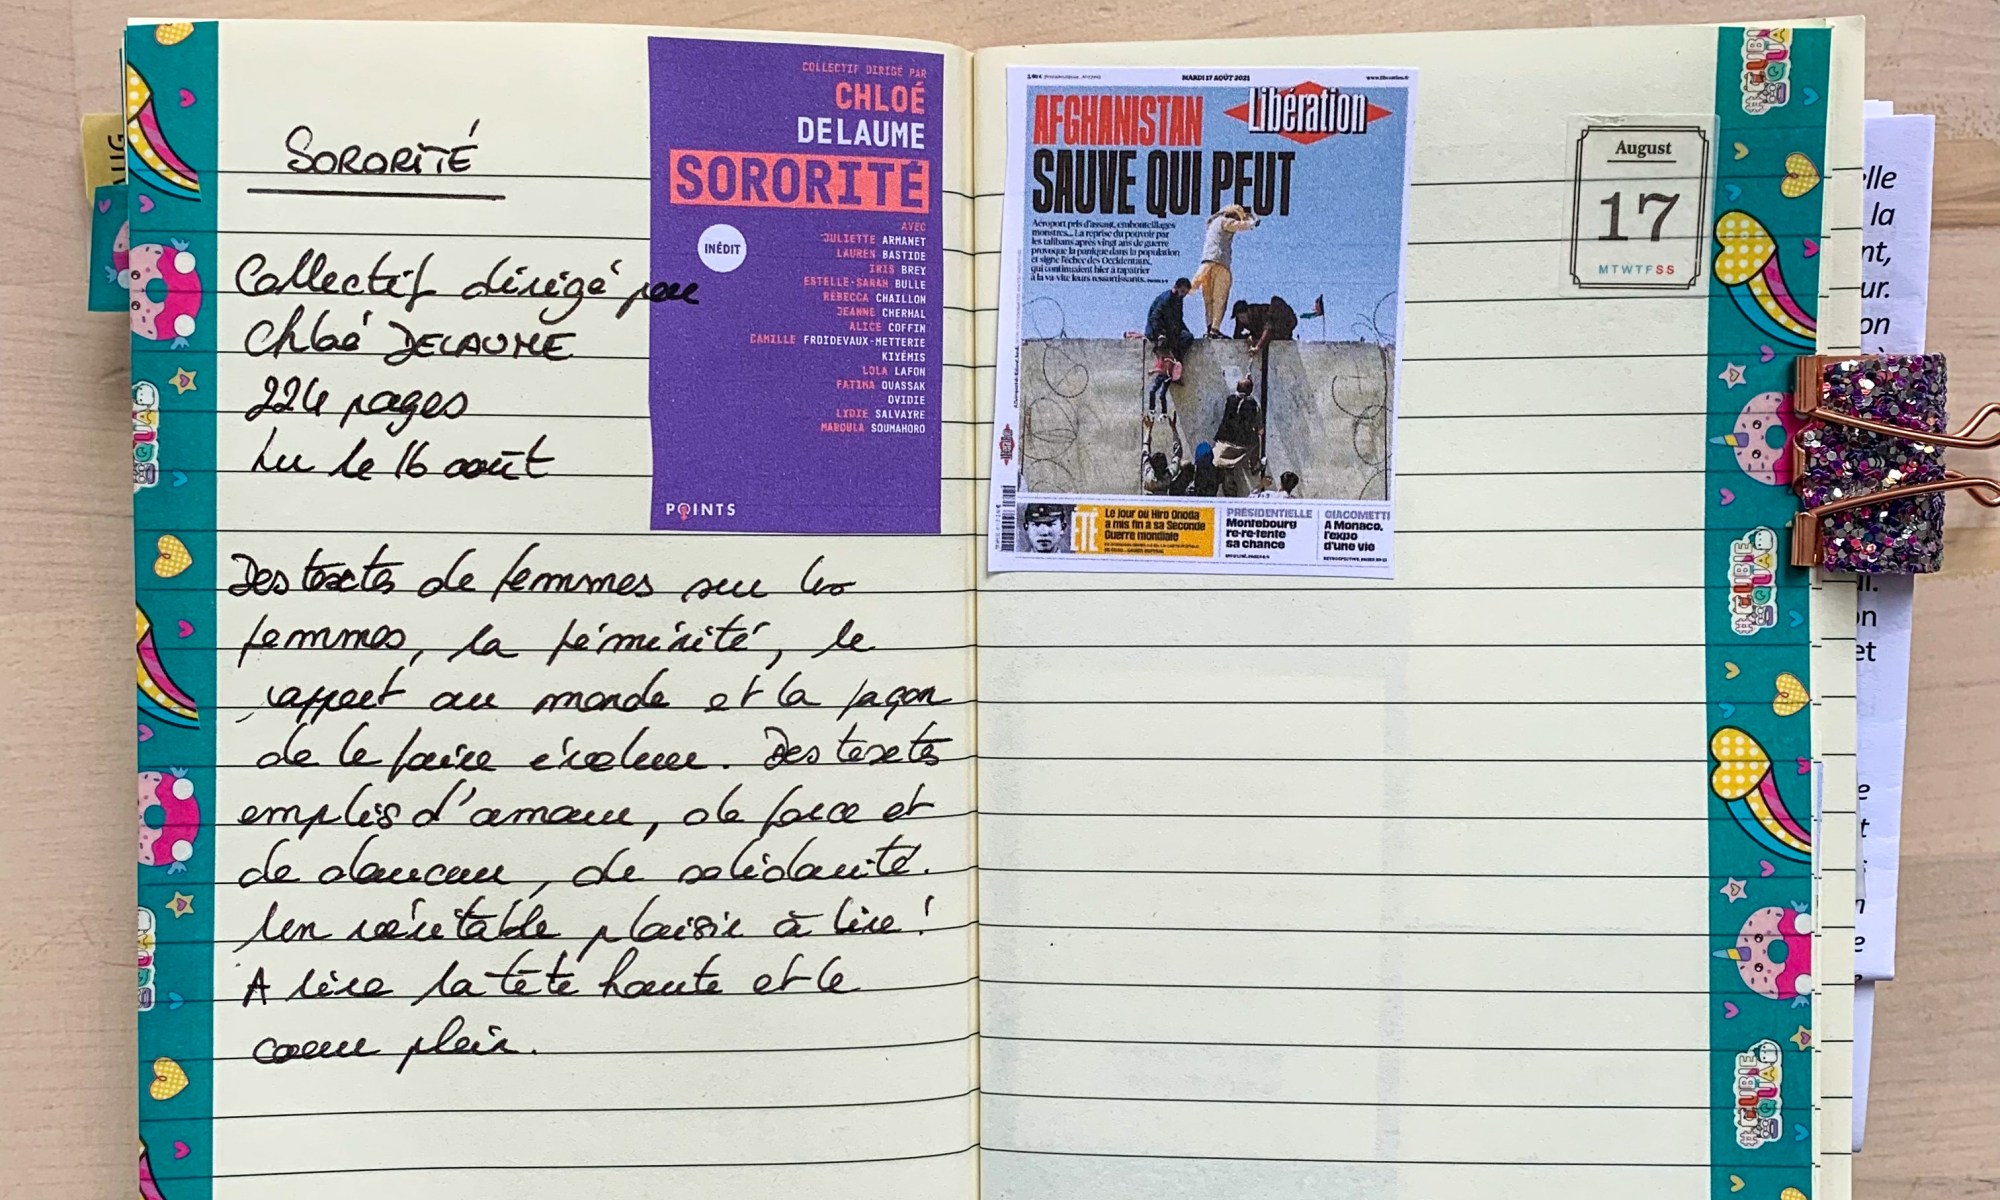 SORORITÉ
Collectif dirigé par
Chloé DELAUME
224 pages
Lu le 16 août
Des textes de femmes sur les
femmes, la féminité, le
rapport au monde et la façon
de le faire évoluer. Des textes
emplis d'amour, de force et
de douceur, de solidarité.
Un véritable plaisir à lire !
A lire la tête haute et le
cœur plein.
COLLECTIF DIRIGÉ PAR
CHLOÉ
DELAUME
SORORITÉ
AVEC
INÉDIT
JULIETTE ARMANET
LAUREN BASTIDE
IRIS BREY
ESTELLE-SARAH BULLE
REBECCA CHAILLON
JEANNE CHERHAL
ALICE COFFIN
CAMILLE FROIDEVAUX-METTERIE
KIYÉMIS
LOLA LAFON
FATIMA OUASSAK
OVIDIE
LYDIE SALVAYRE
MABOULA SOUMAHORO
POINTS
MARDI 17 AOÛT 2021
www.liberation.fr
Libération
AFGHANISTAN
SAUVE QUI PEUT
Aéroport pris d'assaut, embouteillages
monstres... La reprise du pouvoir par
les talibans après vingt ans de guerre
provoque la panique dans la population
et signe l'échec des Occidentaux,
qui continuaient hier à rapatrier
à la va-vite leurs ressortissants.
ÉTÉ
Le jour où Hiro Onoda
a mis fin à sa Seconde
Guerre mondiale
PRÉSIDENTIELLE
Montebourg
re-re-tente
sa chance
GIACOMETTI
A Monaco,
l'expo
d'une vie
August
17
MTWTFSS
AUG
elle
la
nt,
ur.
on
à
on
et